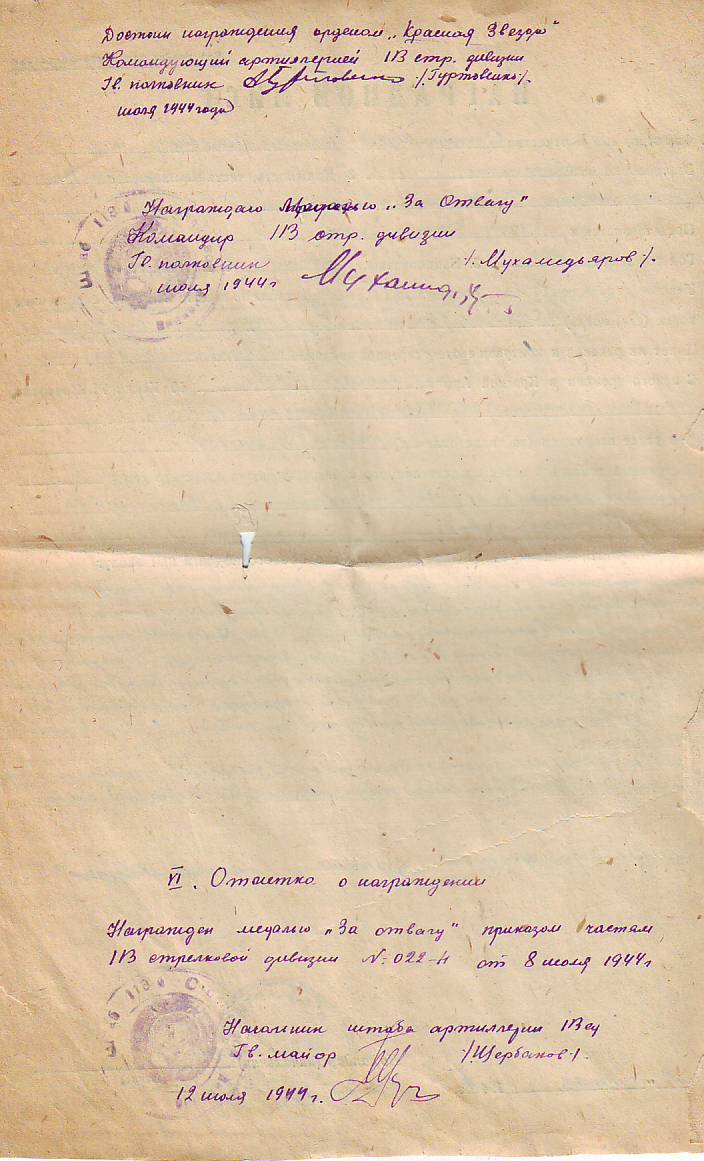 Достоин награждения орденом „Красная Звезда"
Командующий артиллерией 113 стр. дивизии
Гв. полковник /Гуртовенко/.
июля 1944 года
Награждаю Медалью „За Отвагу"
Командир 113 стр. дивизии
Гв. полковник /Мухамедьяров/.
июля 1944 г
VI. Отметка о награждении
Награжден медалью „За отвагу" приказом частям
113 стрелковой дивизии №022-н от 8 июля 1944 г
Начальник штаба артиллерии 113 сд
Гв. майор /Щербаков/.
12 июля 1944 г.